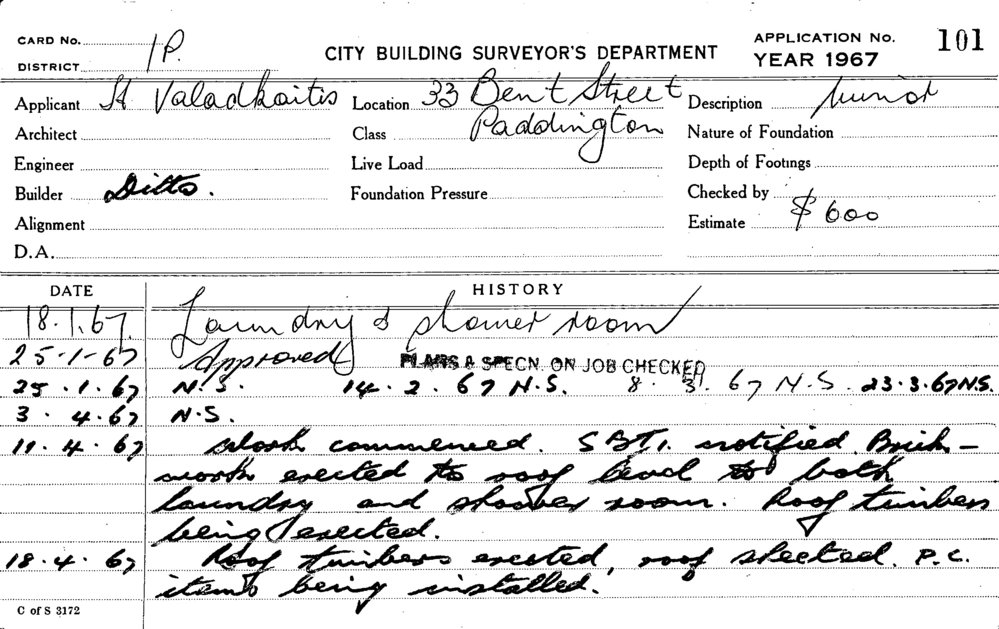 CARD No.
DISTRICT 1P.
CITY BUILDING SURVEYOR'S DEPARTMENT
APPLICATION No. 101
YEAR 1967
Applicant Valadkaitis Location 33 Bent Street Description Minor
Architect Class Paddington Nature of Foundation
Engineer Live Load Depth of Footings
Builder Ditto. Foundation Pressure Checked by
Alignment Estimate $600
D.A.
DATE HISTORY
18.1.67. Laundry & shower room
25-1-67 Approved PLANS & SPECN. ON JOB CHECKED
25.1.67 N.S. 14.2.67 N.S. 8.3.67 N.S. 23.3.67 N.S.
3.4.67 N.S.
11.4.67 Work commenced. notified. Brick-
work erected to roof level to both
laundry and shower room. Roof timbers
being erected.
18.4.67 Roof timbers erected, roof sheeted. P.C.
items being installed.
C of S 3172